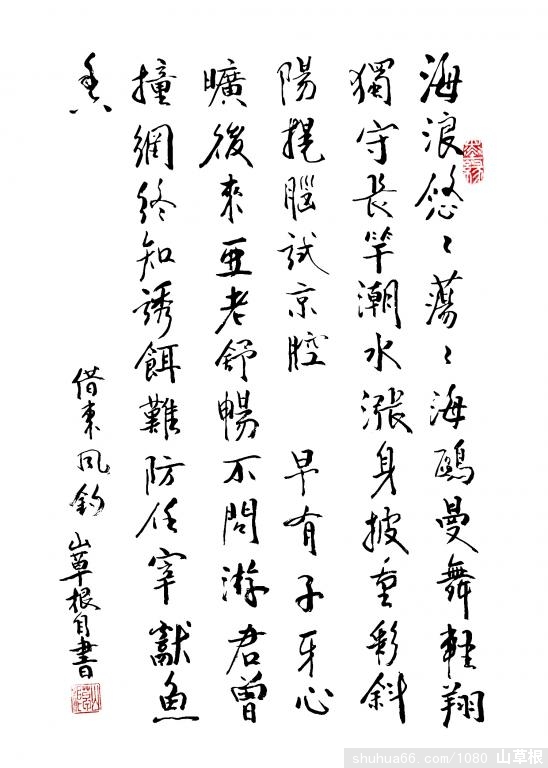 海浪悠〻蕩〻海鷗曼舞輕翔
獨守長竿潮水漲身披重彩斜
陽腦試京腔　早有子牙心
曠後來亞老舒暢不問游君曾
撞網終知誘餌難防任宰獻魚
香
借東風釣 山草根自書
shuhua66.com/1080 山草根